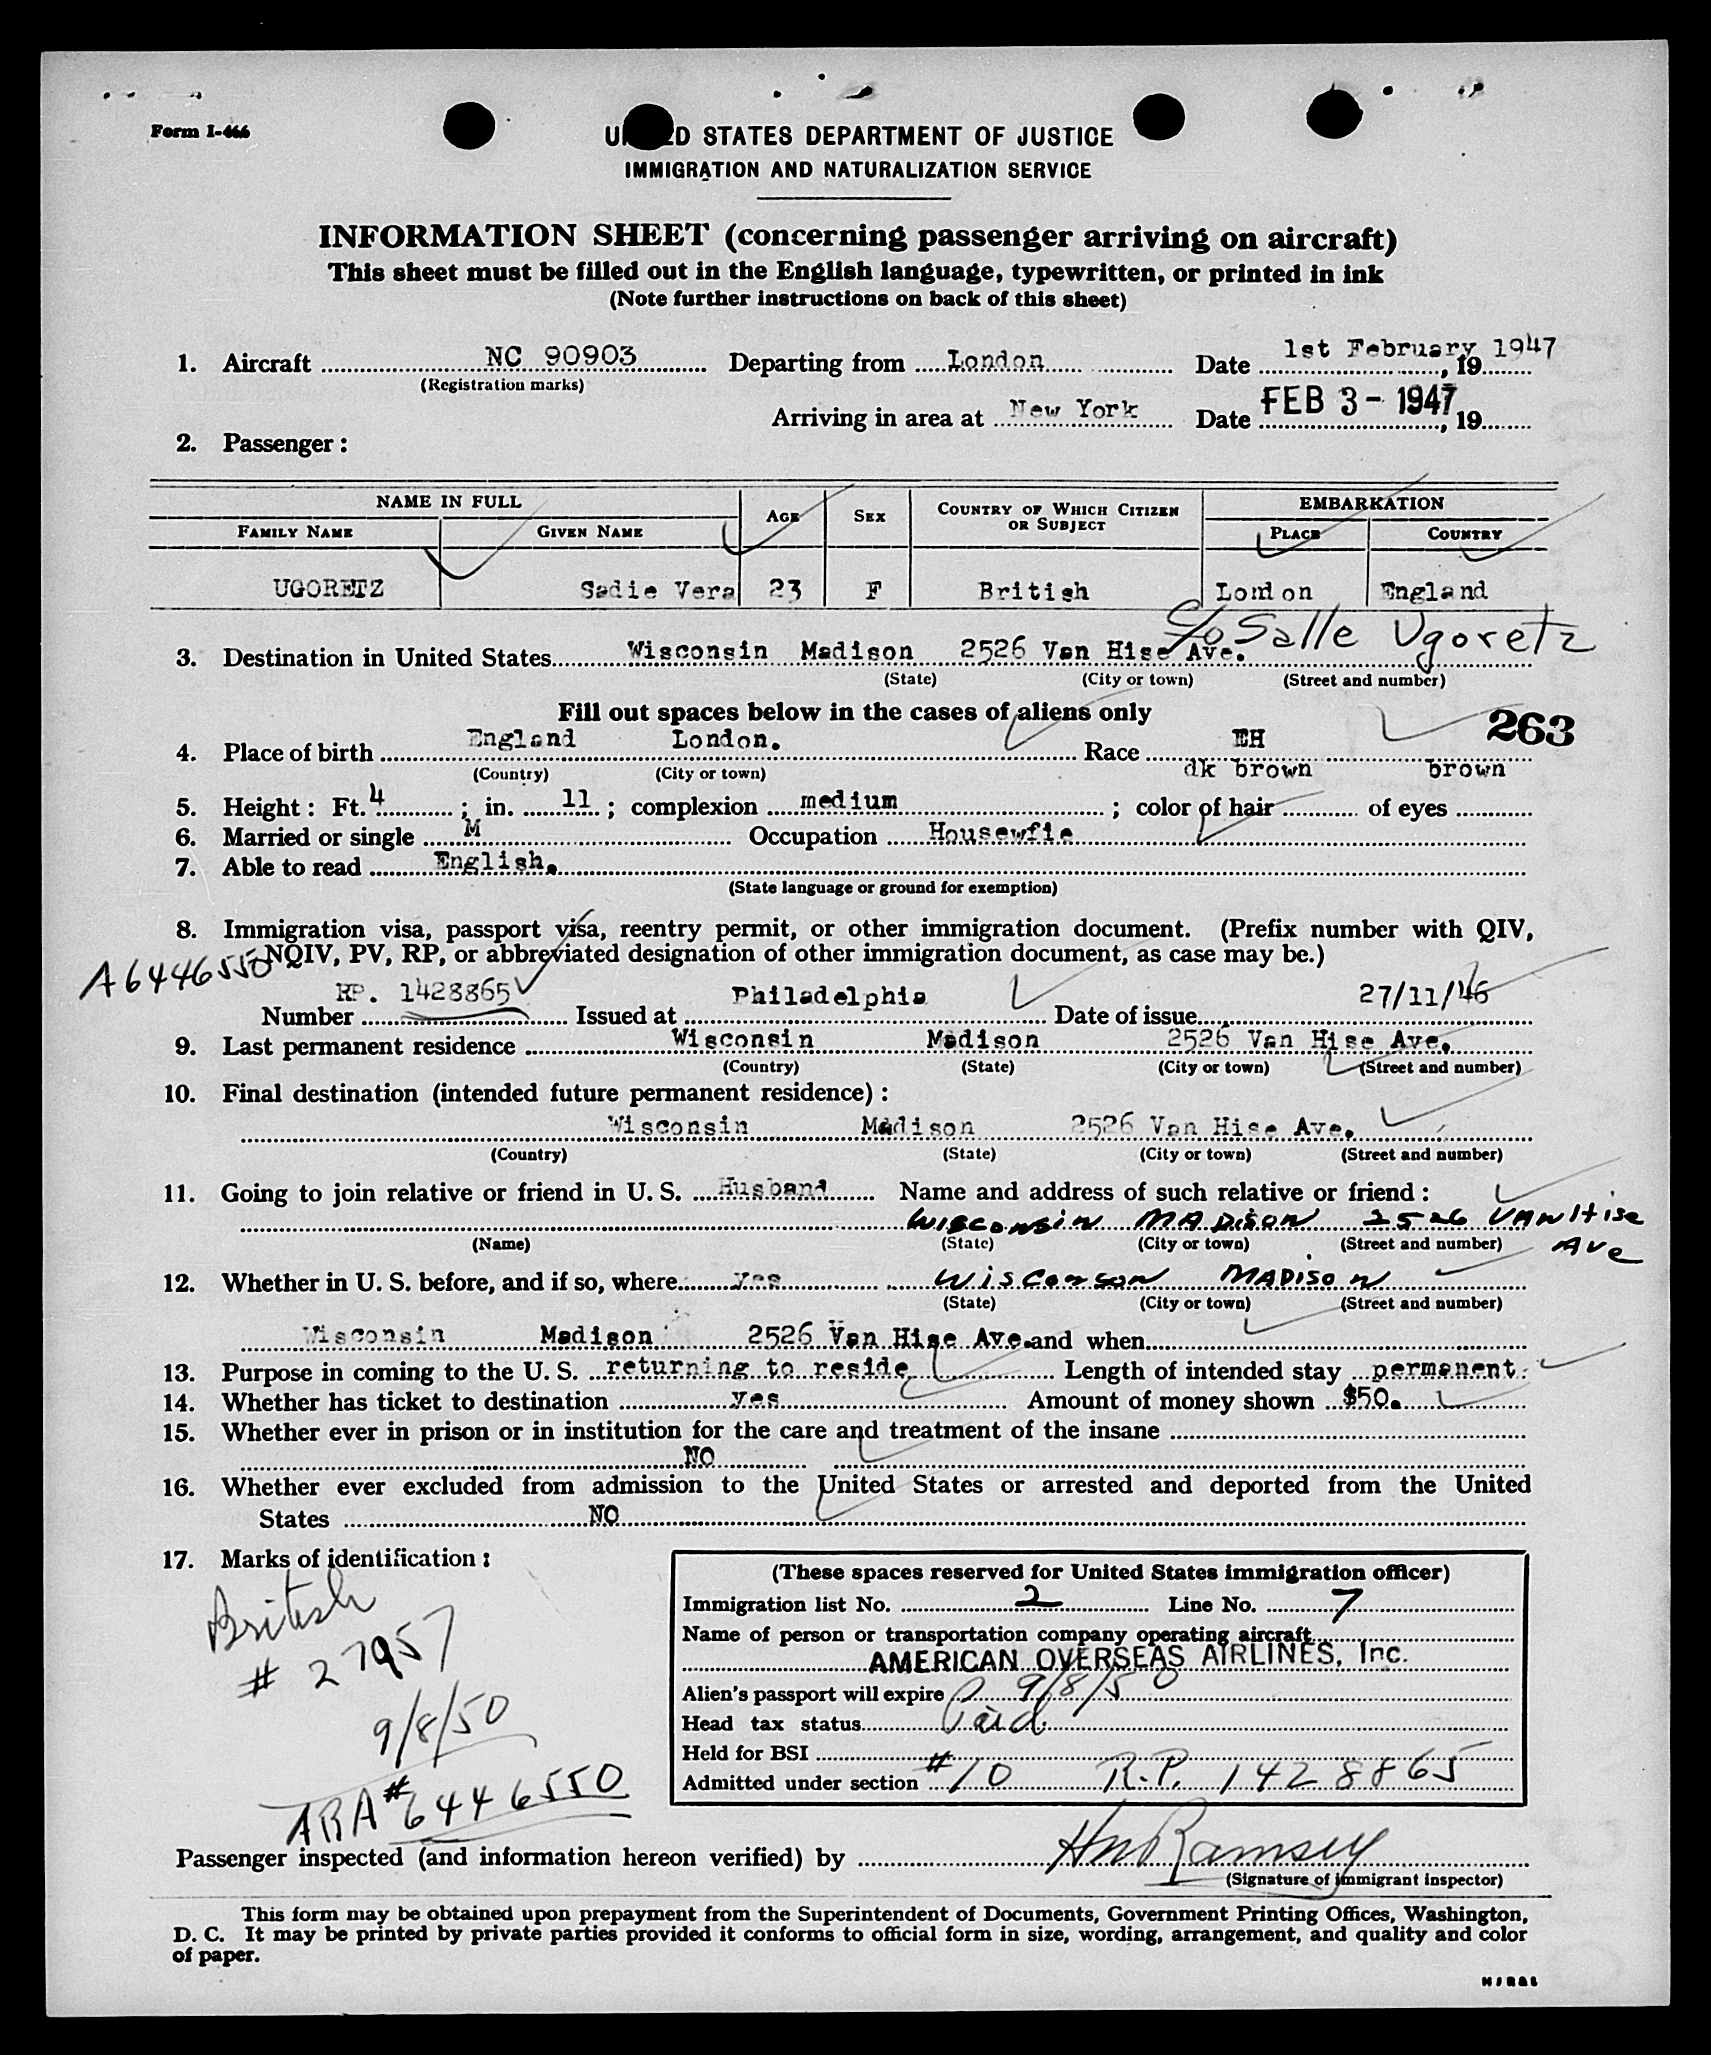 Form I-466
UNITED STATES DEPARTMENT OF JUSTICE
IMMIGRATION AND NATURALIZATION SERVICE
INFORMATION SHEET (concerning passenger arriving on aircraft)
This sheet must be filled out in the English language, typewritten, or printed in ink
(Note further instructions on back of this sheet)
1. Aircraft NC 90903 Departing from London Date 1st February 1947, 19
(Registration marks)
Arriving in area at New York Date FEB 3 - 1947, 19
2. Passenger:
NAME IN FULL AGE SEX COUNTRY OF WHICH CITIZEN OR SUBJECT EMBARKATION
FAMILY NAME GIVEN NAME PLACE COUNTRY
UGORETZ Sadie Vera 23 F British London England
c/o Salle Ugoretz
3. Destination in United States Wisconsin Madison 2526 Van Hise Ave.
(State) (City or town) (Street and number)
Fill out spaces below in the cases of aliens only
263
4. Place of birth England London. Race EH
(Country) (City or town)
dk brown brown
5. Height: Ft. 4; in. 11; complexion medium; color of hair of eyes
6. Married or single M Occupation Housewfie
7. Able to read English.
(State language or ground for exemption)
8. Immigration visa, passport visa, reentry permit, or other immigration document. (Prefix number with QIV,
NQIV, PV, RP, or abbreviated designation of other immigration document, as case may be.)
A6446550
Number RP. 1428865 Issued at Philadelphia Date of issue 27/11/46
9. Last permanent residence Wisconsin Madison 2526 Van Hise Ave.
(Country) (State) (City or town) (Street and number)
10. Final destination (intended future permanent residence):
Wisconsin Madison 2526 Van Hise Ave.
(Country) (State) (City or town) (Street and number)
11. Going to join relative or friend in U. S. Husband Name and address of such relative or friend:
Wisconsin MADISON 2526 VAN Hise Ave
(Name) (State) (City or town) (Street and number)
12. Whether in U. S. before, and if so, where yes Wisconson MADISON
(State) (City or town) (Street and number)
Wisconsin Madison 2526 Van Hise Ave. and when
13. Purpose in coming to the U. S. returning to reside Length of intended stay permanent.
14. Whether has ticket to destination yes Amount of money shown $50.
15. Whether ever in prison or in institution for the care and treatment of the insane
NO
16. Whether ever excluded from admission to the United States or arrested and deported from the United
States NO
17. Marks of identification:
British
# 27957
9/8/50
ARA# 6446550
(These spaces reserved for United States immigration officer)
Immigration list No. 2 Line No. 7
Name of person or transportation company operating aircraft
AMERICAN OVERSEAS AIRLINES, Inc.
Alien's passport will expire 9/8/50
Head tax status Paid
Held for BSI
Admitted under section #10 R.P. 1428865
Passenger inspected (and information hereon verified) by HM Ramsey
(Signature of immigrant inspector)
This form may be obtained upon prepayment from the Superintendent of Documents, Government Printing Offices, Washington,
D. C. It may be printed by private parties provided it conforms to official form in size, wording, arrangement, and quality and color
of paper.